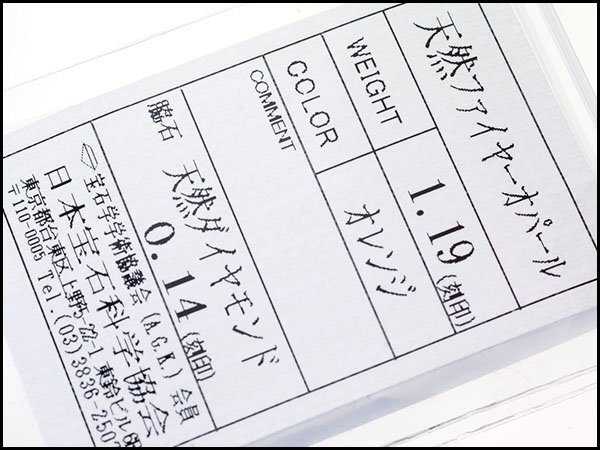 天然ファイヤーオパール
WEIGHT 1.19 (刻印)
COLOR オレンジ
COMMENT
脇石 天然ダイヤモンド
0.14 (刻印)
宝石学学術協議会 (A.G.K.) 会員
日本宝石科学協会
東京都台東区上野5-22-1 東鈴ビル6F
〒110-0005 Tel.(03)3836-250